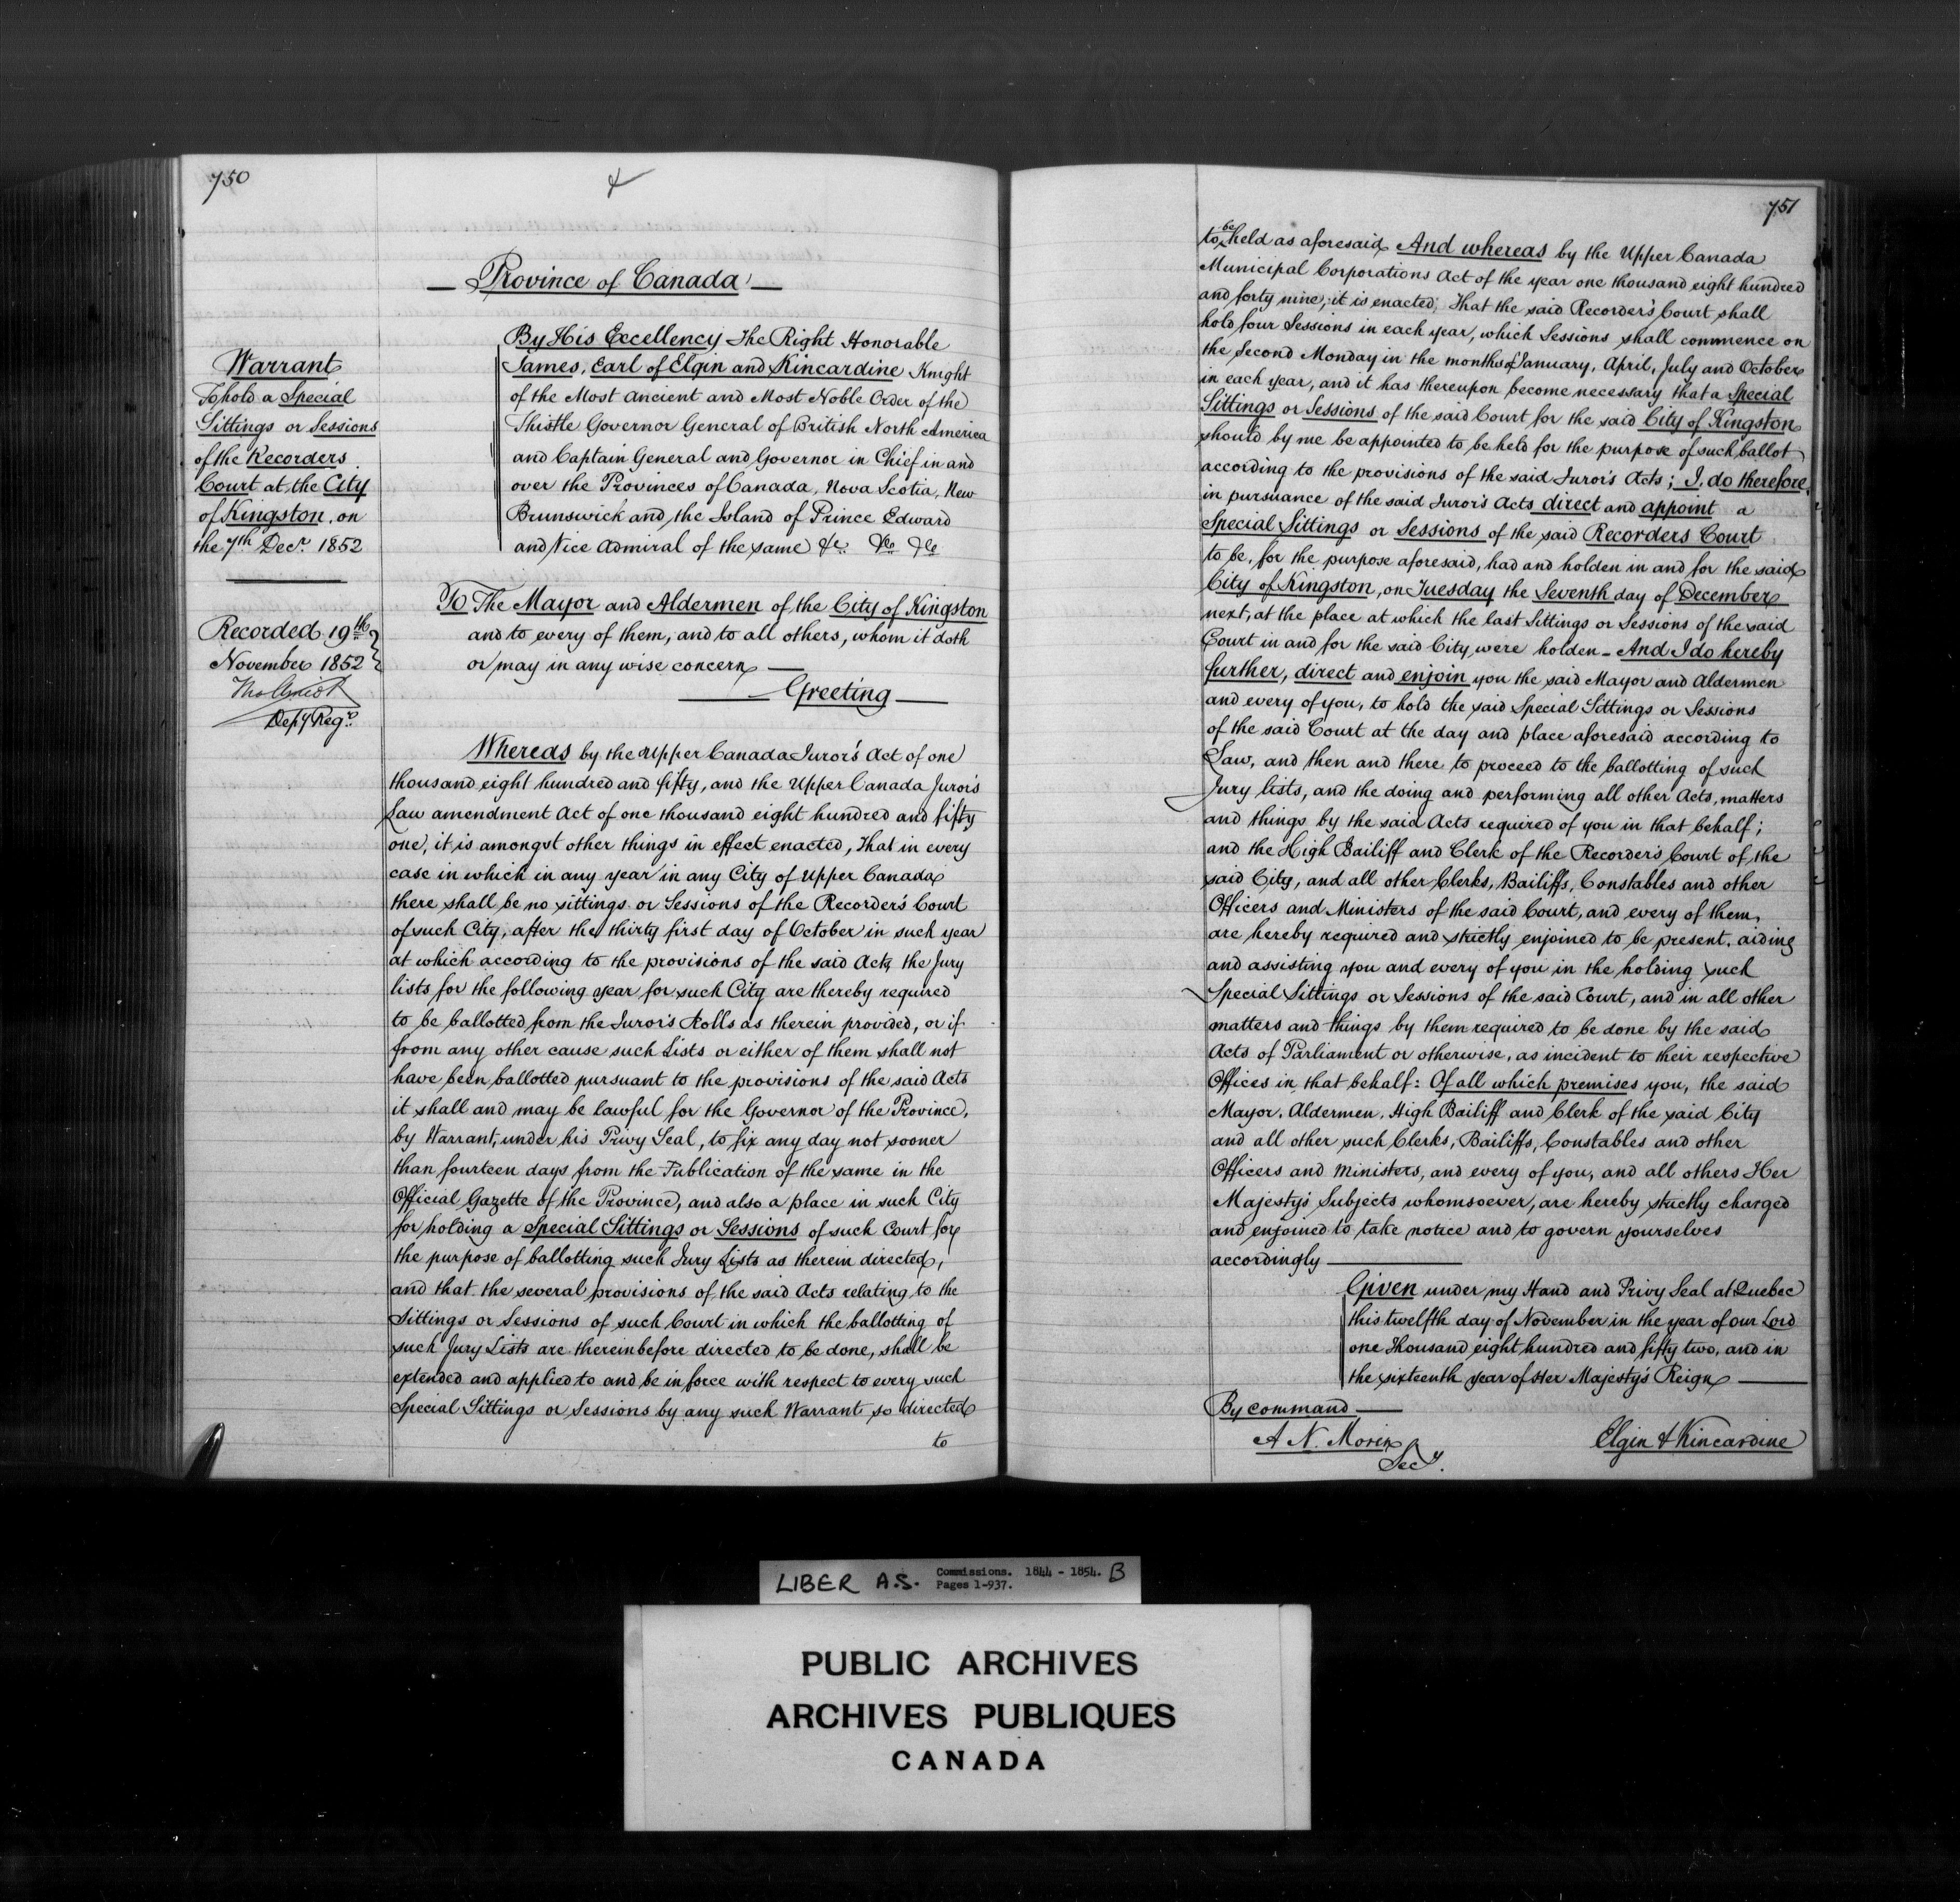 750
&
Province of Canada
Warrant
To hold a Special
Sittings or Sessions
of the Recorders
Court at the City
of Kingston, on
the 7th Decr. 1852
Recorded 19th
November 1852
Depy Regr.
By His Excellency The Right Honorable
James, Earl of Elgin and Kincardine Knight
of the Most Ancient and Most Noble Order of the
Thistle Governor General of British North America
and Captain General and Governor in Chief in and
over the Provinces of Canada, Nova Scotia, New
Brunswick and the Island of Prince Edward
and Vice Admiral of the same &c. &c &c
To The Mayor and Aldermen of the City of Kingston
and to every of them, and to all others, whom it doth
or may in any wise concern —
— Greeting —
Whereas by the Upper Canada Juror's Act of one
thousand eight hundred and fifty, and the Upper Canada Juror's
Law amendment Act of one thousand eight hundred and fifty
one, it is amongst other things in effect enacted, That in every
case in which in any year in any City of Upper Canada
there shall be no sittings or Sessions of the Recorder's Court
of such City, after the thirty first day of October in such year
at which according to the provisions of the said Acts the Jury
lists for the following year for such City are thereby required
to be ballotted from the Juror's Rolls as therein provided, or if
from any other cause such Lists or either of them shall not
have been ballotted pursuant to the provisions of the said Acts
it shall and may be lawful for the Governor of the Province,
by Warrant, under his Privy Seal, to fix any day not sooner
than fourteen days from the Publication of the same in the
Official Gazette of the Province, and also a place in such City
for holding a Special Sittings or Sessions of such Court for
the purpose of ballotting such Jury Lists as therein directed,
and that the several provisions of the said Acts relating to the
Sittings or Sessions of such Court in which the ballotting of
such Jury Lists are thereinbefore directed to be done, shall be
extended and applied to and be in force with respect to every such
Special Sittings or Sessions by any such Warrant so directed
to
751
to be held as aforesaid And whereas by the Upper Canada
Municipal Corporations Act of the year one thousand eight hundred
and forty nine, it is enacted, That the said Recorder's Court shall
hold four Sessions in each year, which Sessions shall commence on
the Second Monday in the months of January, April, July and October
in each year, and it has thereupon become necessary that a Special
Sittings or Sessions of the said Court for the said City of Kingston
should by me be appointed to be held for the purpose of such ballot
according to the provisions of the said Juror's Acts; I, do therefore,
in pursuance of the said Juror's Acts direct and appoint a
Special Sittings or Sessions of the said Recorders Court
to be, for the purpose aforesaid, had and holden in and for the said
City of Kingston, on Tuesday the Seventh day of December
next, at the place at which the last Sittings or Sessions of the said
Court in and for the said City were holden - And I do hereby
further, direct and enjoin you the said Mayor and Aldermen
and every of you, to hold the said Special Sittings or Sessions
of the said Court at the day and place aforesaid according to
Law, and then and there to proceed to the ballotting of such
Jury lists, and the doing and performing all other Acts, matters
and things by the said Acts required of you in that behalf;
and the High Bailiff and Clerk of the Recorder's Court of the
said City, and all other Clerks, Bailiffs, Constables and other
Officers and Ministers of the said Court, and every of them,
are hereby required and strictly enjoined to be present, aiding
and assisting you and every of you in the holding such
Special Sittings or Sessions of the said Court, and in all other
matters and things by them required to be done by the said
Acts of Parliament or otherwise, as incident to their respective
Offices in that behalf: Of all which premises you, the said
Mayor, Aldermen, High Bailiff and Clerk of the said City
and all other such Clerks, Bailiffs, Constables and other
Officers and Ministers, and every of you, and all others Her
Majesty's Subjects whomsoever, are hereby strictly charged
and enjoined to take notice and to govern yourselves
accordingly —
Given under my Hand and Privy Seal at Quebec
this twelfth day of November in the year of our Lord
one thousand eight hundred and fifty two, and in
the sixteenth year of Her Majesty's Reign —
By command —
A N. Morin
Secy.
Elgin & Kincardine
LIBER A.S. Commissions. 1844 - 1854. B
Pages 1-937.
PUBLIC ARCHIVES
ARCHIVES PUBLIQUES
CANADA